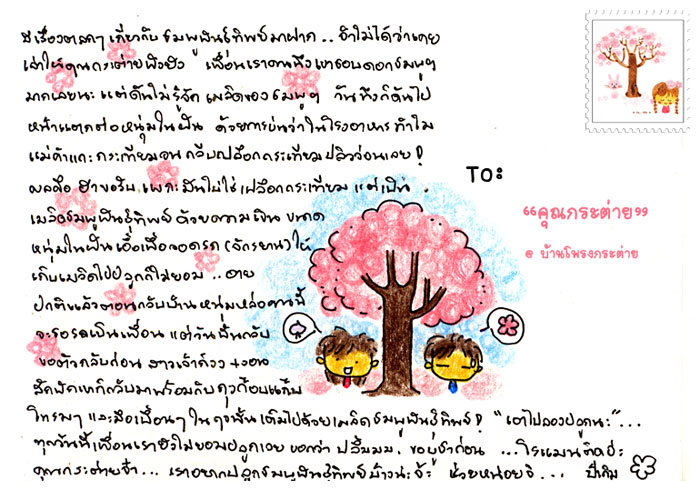 มีเรื่องตลกๆ เกี่ยวกับ ชมพูพันธุ์ทิพย์มาฝาก.. จำไม่ได้ว่าเคย
เล่าให้คุณกระต่ายฟังยัง เพื่อนเราคนนึงเขาชอบดอกชมพูฯ
มากเลยนะ แต่ดันไม่รู้จัก เมล็ดของชมพูฯ วันนึงก็ดันไป
หน้าแตกต่อหนุ่มในฝัน ด้วยการบ่นว่าในโรงอาหาร ทำไม
แม่ค้าแกะกระเทียมจนกลีบเปลือกกระเทียมปลิวว่อนเลย!
ผลคือ ฮาขอรับ เพราะมันไม่ใช่เปลือกกระเทียม แต่เป็น
เมล็ดชมพูพันธุ์ทิพย์ ด้วยความเขิน ขนาด
หนุ่มในฝันเอื้อเฟื้อจอดรถ (จักรยาน) ให้
เก็บเมล็ดไปปลูกก็ไม่ยอม .. อาย
ปกติแล้วตอนกลับบ้านหนุ่มหล่อคนนี้
จะรอรถเป็นเพื่อน แต่วันนั้นกลับ
ขอตัวกลับก่อน สาวเจ้าก็งง รอ
สักพักเขาก็กลับมาพร้อมกับถุงก๊อบแก๊บ
โทรมๆ และมือเปื้อนๆ ในถุงนั้นเต็มไปด้วยเมล็ดชมพูพันธุ์ทิพย์! "เอาไปลองปลูกนะ"...
ทุกวันนี้เพื่อนเรายังไม่ยอมปลูกเลย บอกว่า ปลื้มมม. ขอบูชาก่อน ...โรแมนติคป่ะ
คุณกระต่ายจ๋า... เราอยากปลูกชมพูพันธุ์ทิพย์บ้างน่ะจ้ะ ช่วยหน่อยจิ...
TO:
"คุณกระต่าย"
@ บ้านโพรงกระต่าย